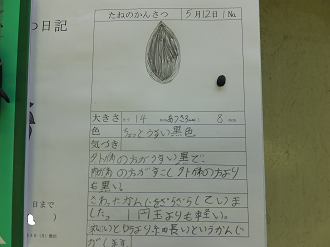 たねのかんさつ 5月12日 No.
つ日記
大きさ たて 14 mm あつさ 8 mm
色 ちょっとうすい黒色。
気づき
外がわの方がうすい黒で、
内がわの方がすこし外がわの方より
も黒い。
さわったかんじはざらざらしていまし
た。1円玉よりも軽い。
丸いというより細長いというかんじ
がします。
日まで